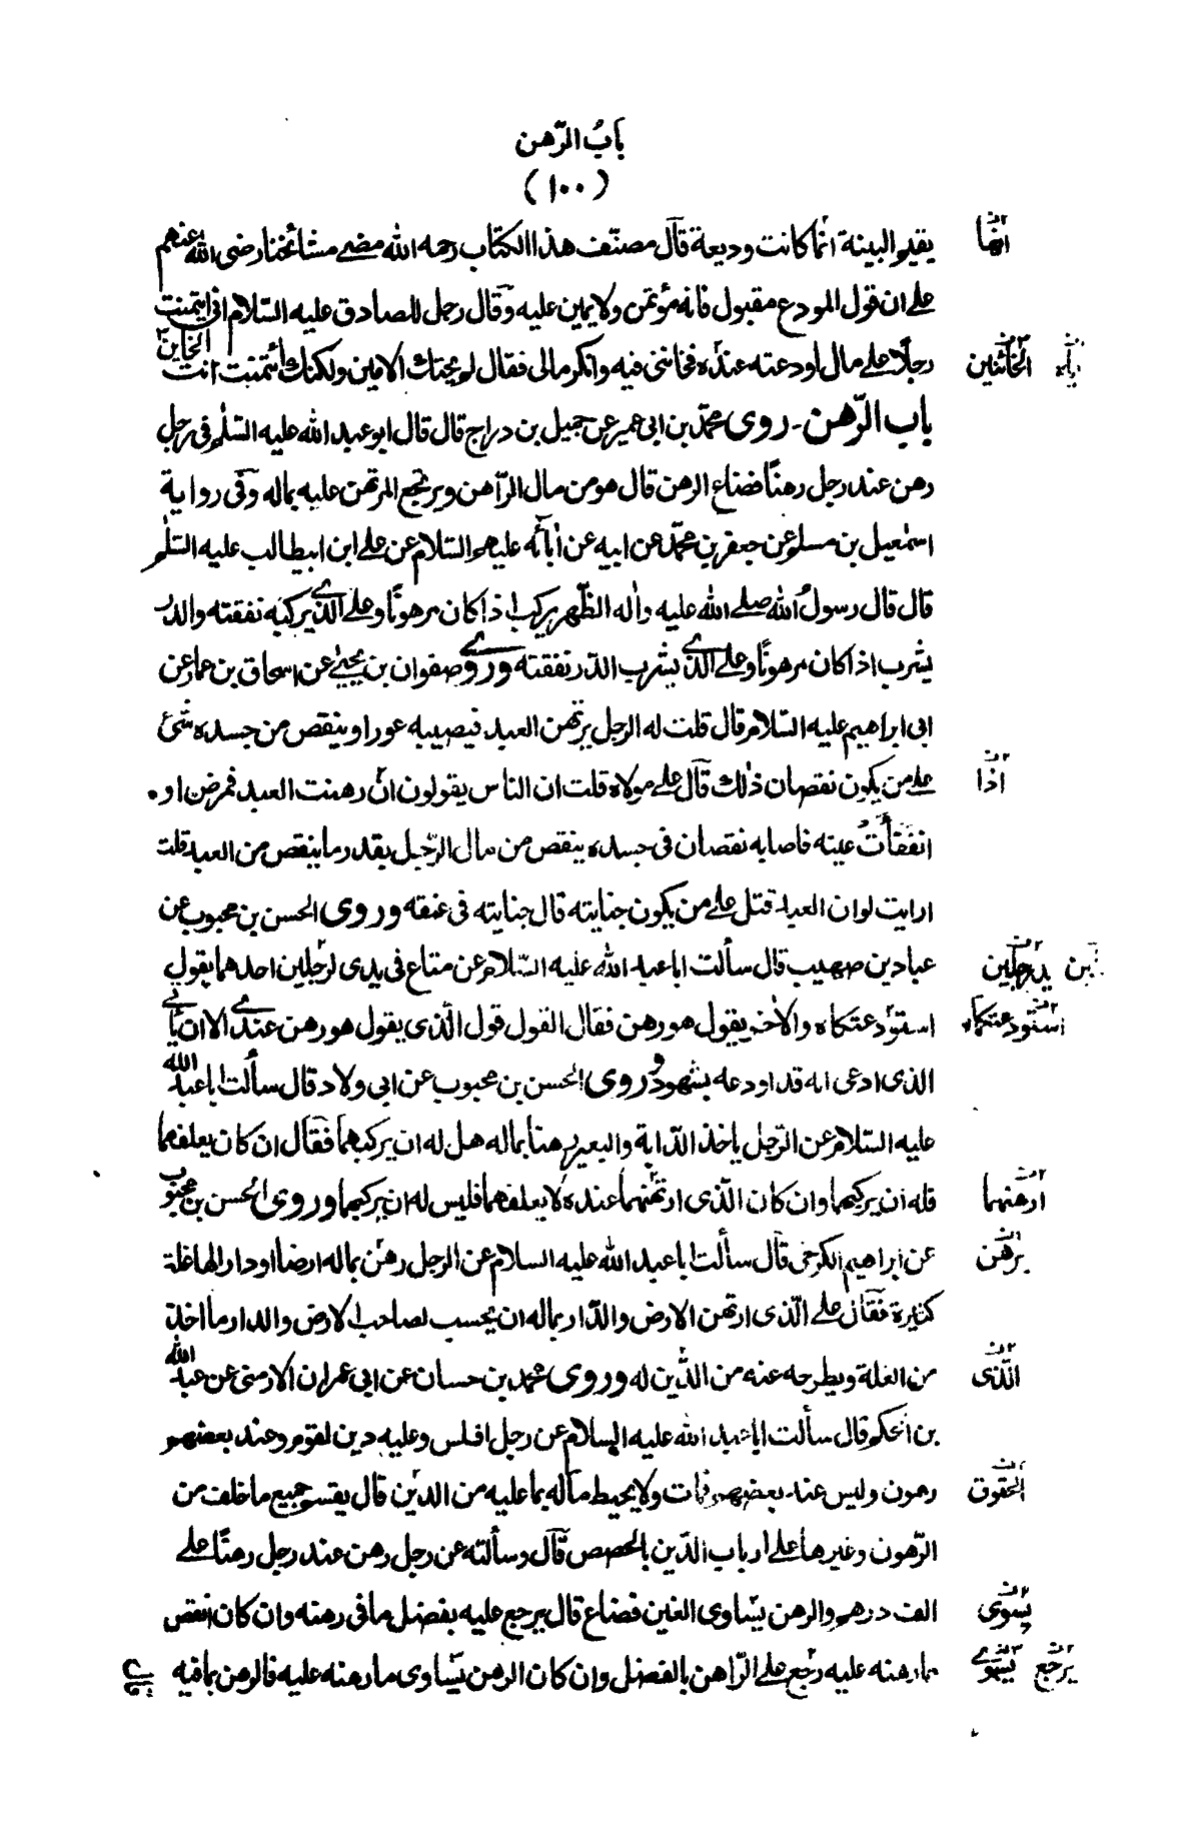 باب الرّهن
(١٠٠)
يقيم البينة انّما كانت وديعة قال مصنّف هذا الكتاب رحمه الله مضے مشائخنا رضی الله عنهم
علے ان قول المودع مقبول فانه مؤتمن ولا يمين عليه وقال رجل للصادق عليه السّلام انی ايتمنت
رجلًا علے مال اودعته عنده فخاننی فيه وانكر مالی فقال لم يخنك الامين ولكنك ائتمنت انت الخاين
باب الرّهن - روی محمّد بن ابی عمير عن جميل بن دراج قال قال ابو عبد الله عليه السّلم فی رجل
رهن عند رجل رهنًا فضاع الرهن قال هو من مال الرّاهن ويرتجع المرتهن عليه بماله وفی رواية
اسمٰعيل بن مسلم عن جعفر بن محمّد عن ابيه عن اٰبائه عليهم السّلام عن علے ابن ابيطالب عليه السّلم
قال قال رسول الله صلے الله عليه واٰله الظّهر يركب اذا كان مرهونًا وعلے الّذے يركبه نفقته والدّر
يشرب اذا كان مرهونًا وعلے الّذے يشرب الدّر نفقته وروے صفوان بن يحيیٰ عن اسحاق بن عمار عن
ابی ابراهيم عليه السّلام قال قلت له الرجل يرتهن العبد فيصيبه عور او ينقص من جسده شئ
علے من يكون نقصان ذٰلك قال علے مولاه قلت ان الناس يقولون ان رهنت العبد فمرض او
انفقأت عينه فاصابه نقصان فی جسده ينقص من مال الرّجل بقدر ما ينقص من العبد قلت
ارايت لو ان العبد قتل علے من يكون جنايته قال جنايته فی عنقه وروی الحسن بن محبوب عن
عباد بن صهيب قال سألت ابا عبد الله عليه السّلام عن متاع فی يدی لرجلين احدهما يقول
استودعتكاه والاٰخر يقول هو رهن فقال القول قول الّذی يقول هو رهن عندے الا ان ياتے
الذی ادعی انه قد اودعه بشهود وروی الحسن بن محبوب عن ابی ولاد قال سألت ابا عبد الله
عليه السّلام عن الرّجل ياخذ الدّابة والبعير رهنا بماله هل له ان يركبهما فقال ان كان يعلفهما
فله ان يركبهما وان كان الّذی ارتهنهما عنده لا يعلفهما فليس له ان يركبهما وروی الحسن بن محبوب
عن ابراهيم الكرخی قال سألت ابا عبد الله عليه السلام عن الرجل رهن بماله ارضا او دارا لها غلة
كثيرة فقال علے الّذی ارتهن الارض والدّار بماله ان يحسب لصاحب الارض والدار ما اخذ
من الغلة ويطرحه عنه من الدّين له وروی محمد بن حسان عن ابی عمران الارمنی عن عبد الله
بن الحكم قال سألت ابا عبد الله عليه السلام عن رجل افلس وعليه دين لقوم وعند بعضهم
رهون وليس عند بعضهم فمات ولا يحيط ماله بما عليه من الدين قال يقسم جميع ما خلف من
الرّهون وغيرها علے ارباب الدّين بالحصص قال وسألته عن رجل رهن عند رجل رهنًا علے
الف درهم والرهن يسّاوی الفين فضاع قال يرجع عليه بفضل ما فی رهنه وان كان انقص
مما رهنه عليه رجع علے الرّاهن بالفضل وان كان الرهن يسّاوی ما رهنه عليه فالرهن بما فيه
انّها
الخائنين
اذا
يد رجلين
استودعتكاه
ارهنهما
يرهن
الّذی
الحقوق
يسوی
يرجع يسوے